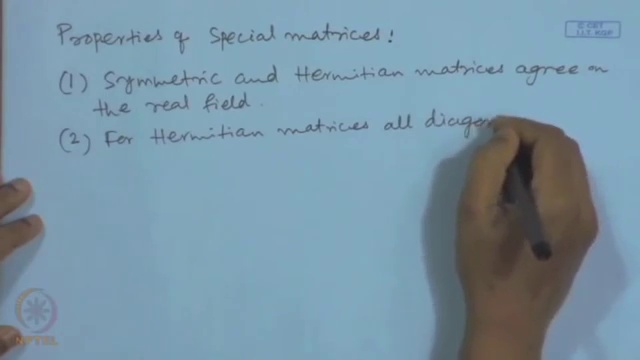 Properties of Special matrices:
© CET
I.I.T. KGP
(1) Symmetric and Hermitian matrices agree on
the real field.
(2) For Hermitian matrices all diagon
NPTEL